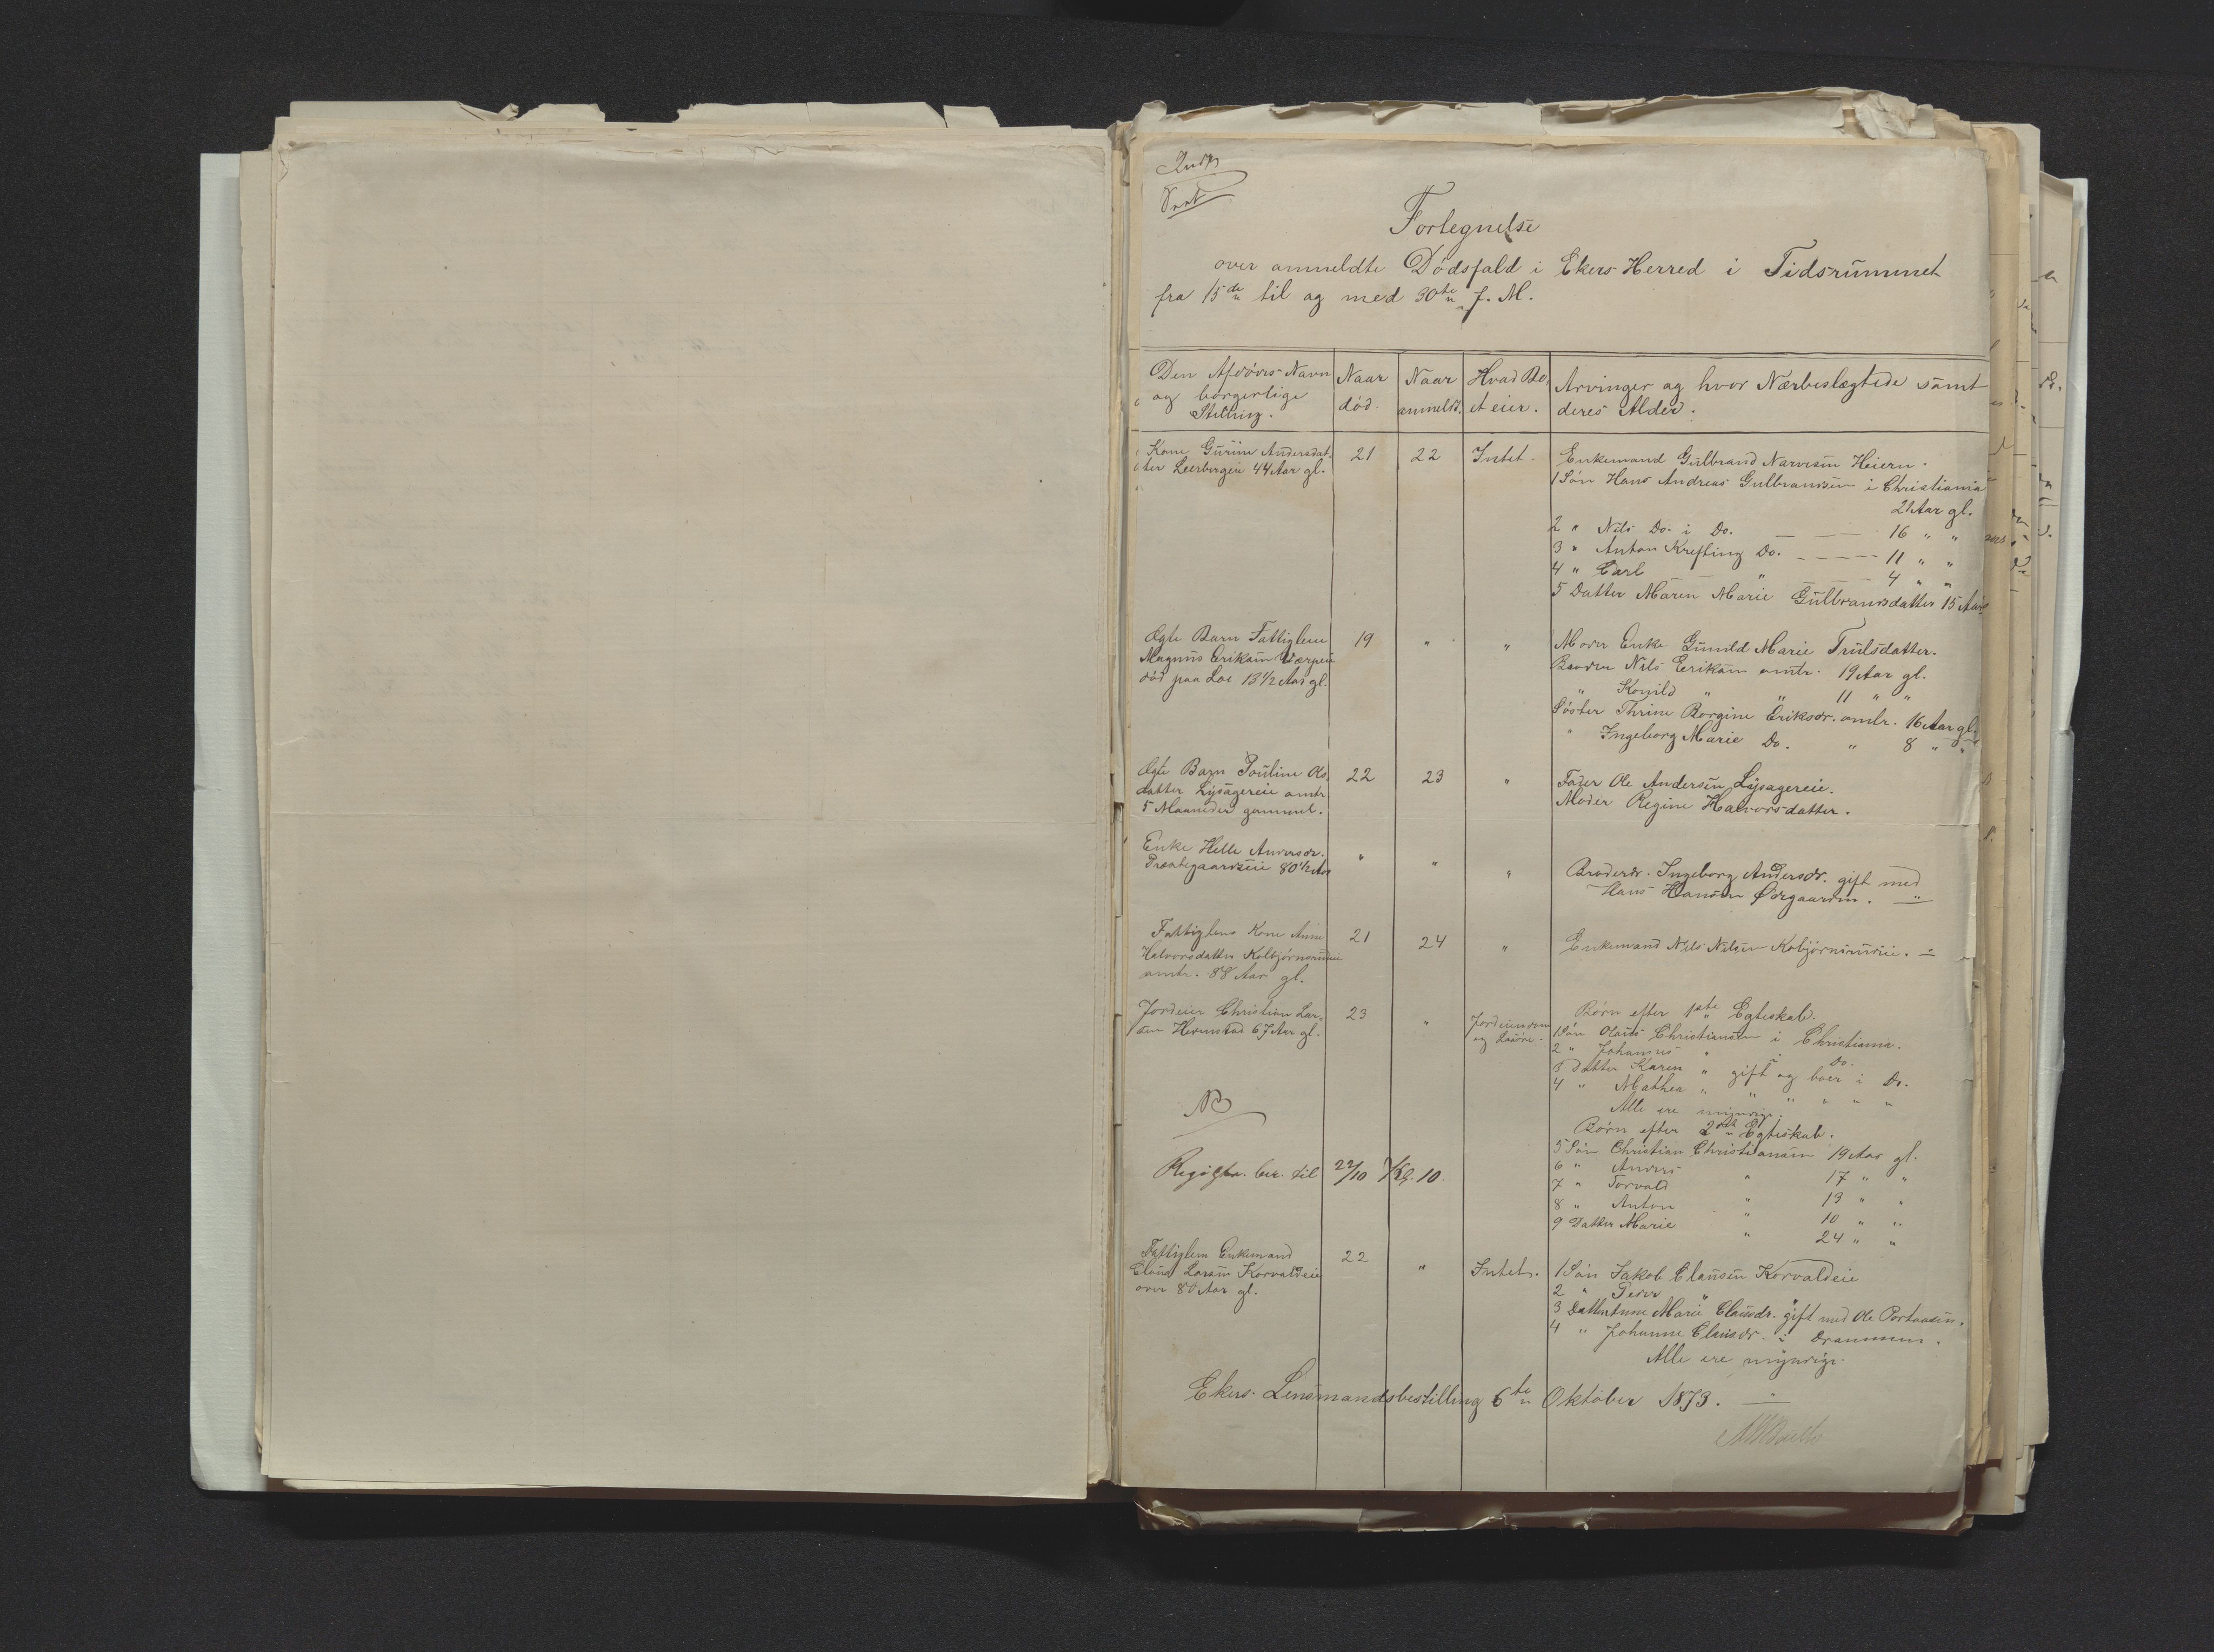 Fortegnelse
over anmeldte Dödsfald i Ekers Herred i Tidsrummet
fra 15de til og med 30te f. M.
Den Afdödes Navn og borgerlige Stilling.
Naar död.
Naar anmeldt.
Hvad Bo- et eier.
Arvinger og hvor Nærbeslægtede samt deres Alder.
Kone Gurine Andersdat-
ter Leerbergeie 44 Aar gl.
21
22
Intet.
Enkemand Gulbrand Narvesen Heiern.
1 Sön Hans Andreas Gulbrandsen i Christiania
21 Aar gl.
2 " Nils Do. i Do. — — 16 " "
3 " Anton Krefting Do. — — 11 " "
4 " Carl " — 4 " "
5 Datter Maren Marie Gulbrandsdatter 15 Aar
Ægte Barn Fattiglem
Magnus Eriksen
död paa Loe 13 1/2 Aar gl.
19
"
"
Moder Enke Gunild Marie Trulsdatter.
Broder Nils Eriksen omtr. 19 Aar gl.
" " " 11 " "
Söster Thrine Borgine Eriksdr. omtr. 16 Aar gl.
" Ingeborg Marie Do. " 8 " "
Ægte Barn Pouline Ols-
datter Lysagereie omtr.
5 Maaneder gammel.
22
23
"
Fader Ole Andersen Lysagereie.
Moder Regine Halvorsdatter.
Enke Helle Andersdr.
Præstegaardseie 80 1/2 Aar
"
"
"
Broderdr. Ingeborg Andersdr. gift med
Hans Hansen Örgaarden. —"—
Fattiglems Kone Anne
Halvorsdatter Kolbjörnsrudeie
omtr. 88 Aar gl.
21
24
"
Enkemand Nils Nilsen Kobjörnsrudeie. —
Jordeier Christian Lar-
sen Hermstad 67 Aar gl.
23
"
Jordeiendom
og Lösöre.
Börn efter 1ste Egteskab.
1 Sön Christiansen i Christiania.
2 " Johannes " " Do.
3 Datter Karen " gift og boer i Do.
4 " Mathea " " " " "
Alle ere myndige.
Börn efter 2det Egteskab.
5 Sön Christian Christiansen 19 Aar gl.
6 " Anders " 17 " "
7 " Torvald " 13 " "
8 " Anton " 10 " "
9 Datter Marie " 24 " "
NB
Registr. ber. til 22/10 Kl. 10.
Fattiglem Enkemand
Claus Larsen Korvaldeie
over 80 Aar gl.
22
"
Intet.
1 Sön Jakob Clausen Korvaldeie
2 " Peder "
3 Datter Anne Marie Clausdr. gift med Ole
4 " Johanne Clausdr. i Drammen.
Alle ere myndige.
Ekers Lensmandsbestilling 6te Oktober 1873. —